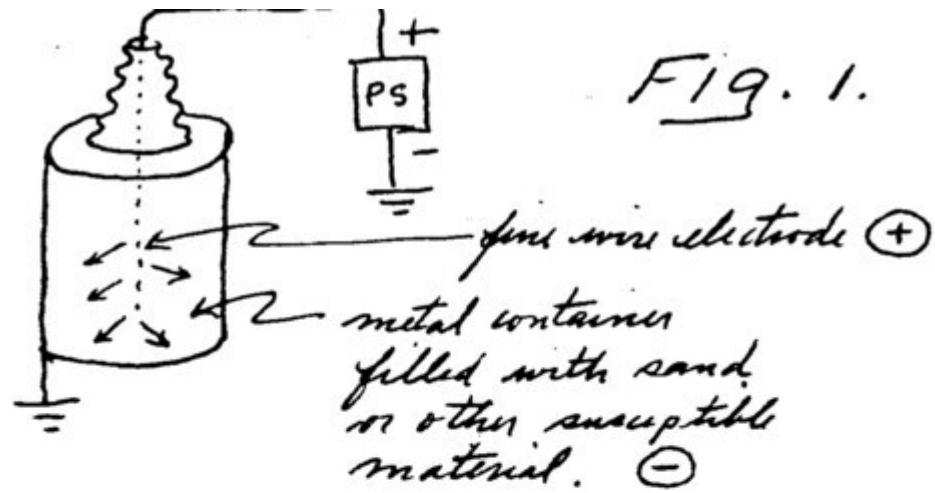 +
PS
Fig. 1.
-
fine wire electrode ⊕
metal container
filled with sand
or other susceptible
material. ⊖